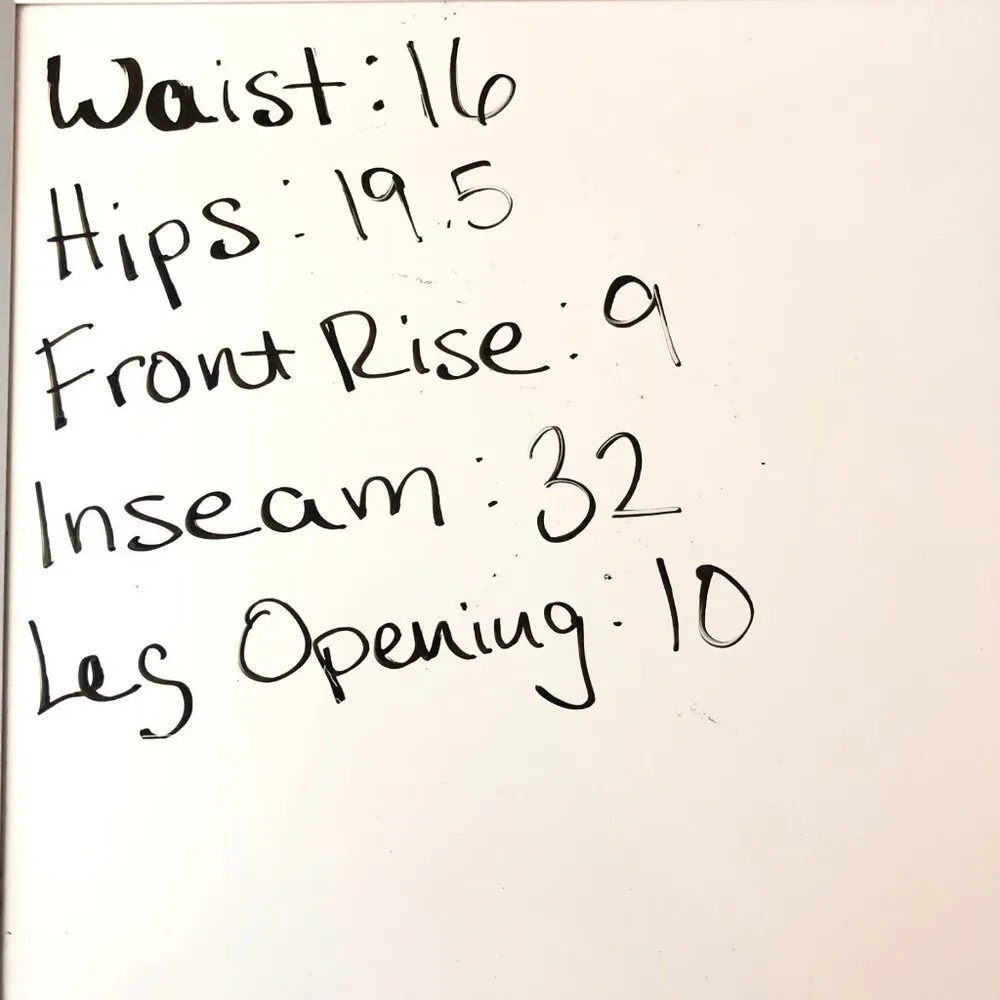 Waist: 16
Hips: 19.5
Front Rise: 9
Inseam: 32
Leg Opening: 10